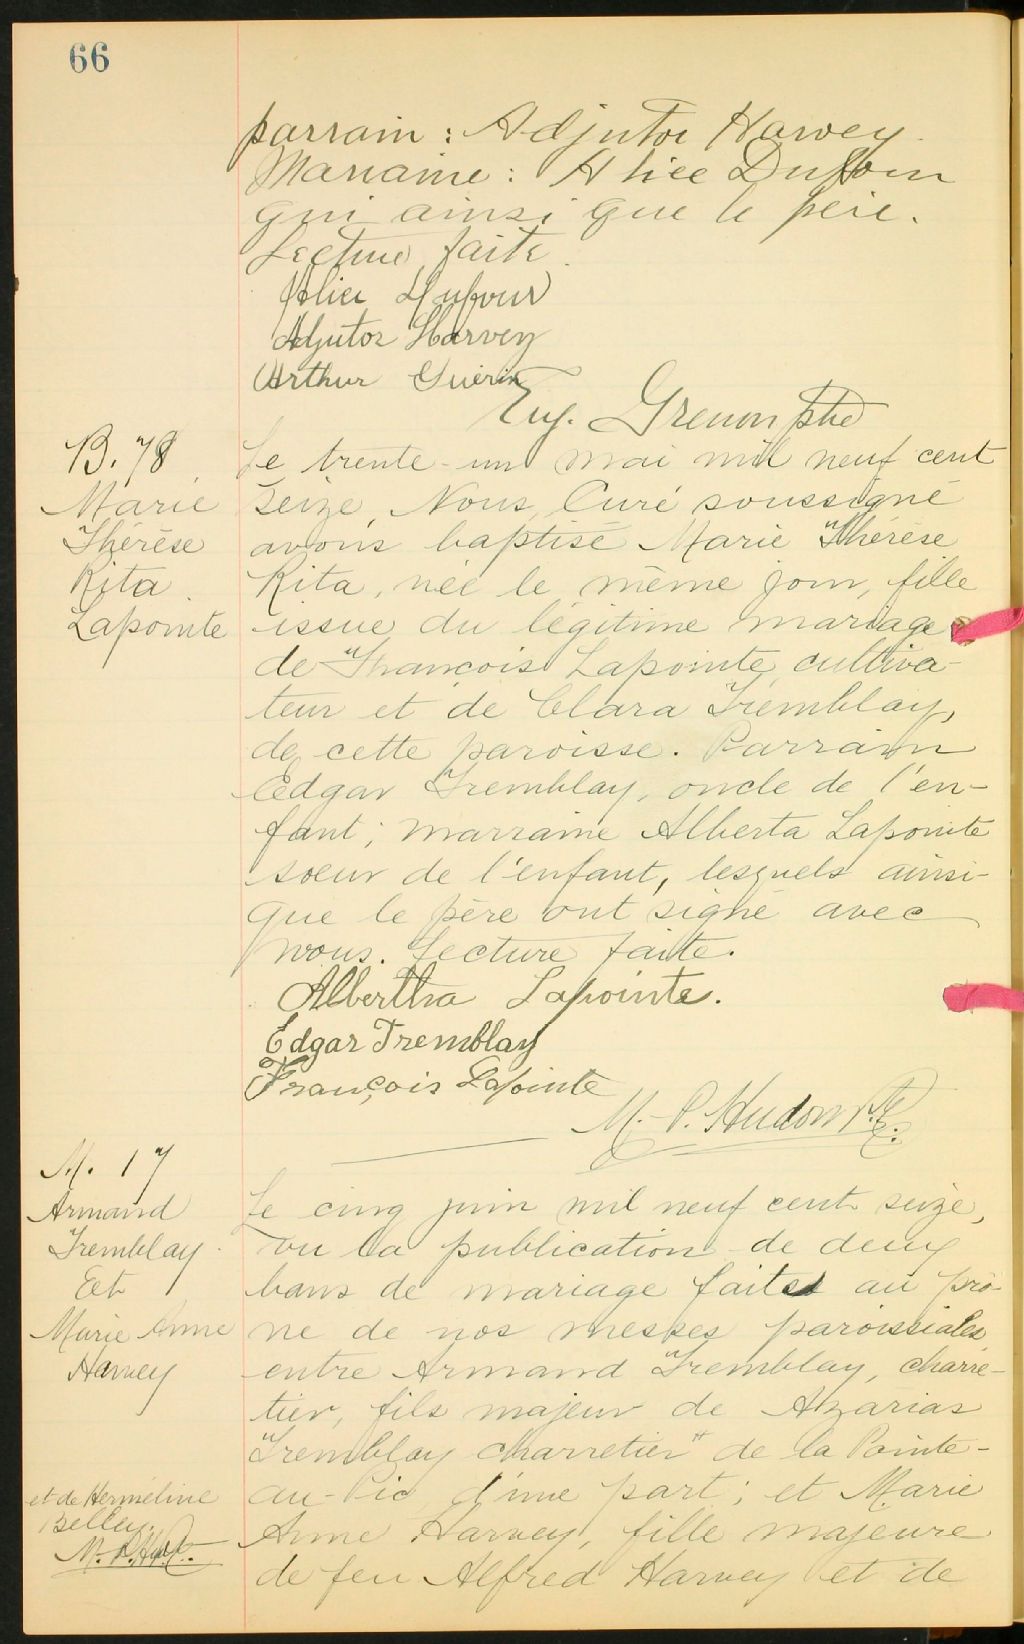 66
parrain : Adjutor Harvey.
Marraine : Alice Dufour
qui ainsi que le père.
Lecture faite.
Alice Dufour
Adjutor Harvey
Arthur Guérin
Eug. Grenon ptre
B. 78
Marie
Thérèse
Rita
Lapointe
Le trente-un mai mil neuf cent
seize, Nous, Curé soussigné
avons baptisé Marie Thérèse
Rita, née le même jour, fille
issue du légitime mariage
de François Lapointe, cultiva-
teur et de Clara Tremblay,
de cette paroisse. Parrain
Edgar Tremblay, oncle de l'en-
fant ; marraine Alberta Lapointe
soeur de l'enfant, lesquels ainsi
que le père ont signé avec
nous. Lecture faite.
Albertha Lapointe.
Edgar Tremblay
François Lapointe
M.-P. Hudon Ptre
M. 17
Armand
Tremblay
Et
Marie Anne
Harvey
Le cinq juin mil neuf cent seize,
vu la publication de deux
bans de mariage faites au prô-
ne de nos messes paroissiales
entre Armand Tremblay, charre-
tier, fils majeur de Azarias
Tremblay charretier # de la Pointe-
au-Pic d'une part ; et Marie
Anne Harvey, fille majeure
de feu Alfred Harvey et de
et de Herméline
Belley.
M.-P. H.